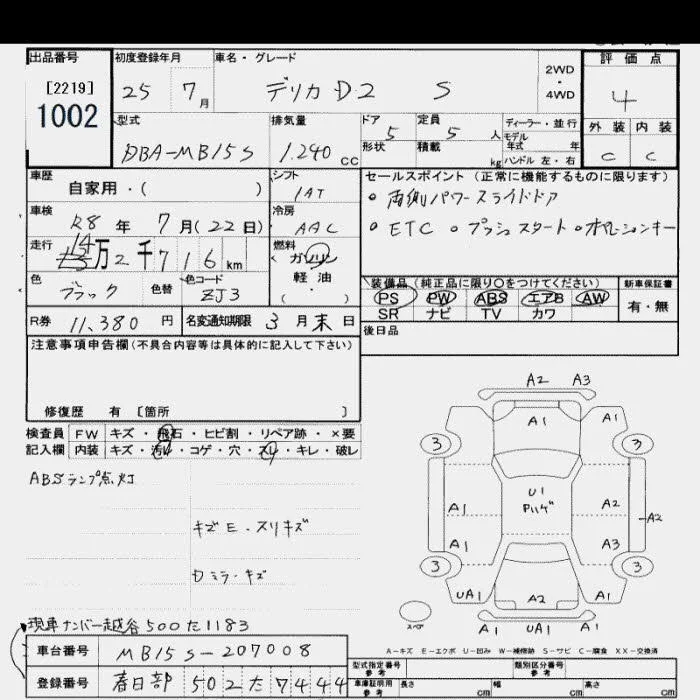 出品番号
[2219]
1002
初度登録年月
25 7月
車名・グレード
デリカD2 S
2WD
・
4WD
評価点
4
外装 内装
C C
型式
DBA-MB15S
排気量
1.240 CC
ドア
5
形状
定員
5 人
積載
kg
ディーラー・並行
モデル
年式 年
ハンドル 左・右
車歴
自家用・( )
シフト
IAT
セールスポイント (正常に機能するものに限ります)
・両側パワースライドドア
・ETC ・プッシュスタート ・オートエンジンキー
車検
R8 年 7 月(22日)
冷房
AAC
走行
14万2千716km
燃料
ガソリン
軽油
( ・ )
色
ブラック
色替
色コード
ZJ3
装備品 (純正品に限り〇をつけてください)
PS PW ABS エアB AW
SR ナビ TV カワ
新車保証書
有・無
R券 11,380 円
名変通知期限 3 月 末 日
後日品
注意事項申告欄(不具合内容等は具体的に記入して下さい)
修復歴 有 [箇所 ]
検査員 FW キズ・飛石・ヒビ割・リペア跡・×要
記入欄 内装 キズ・汚れ・コゲ・穴・スレ・キレ・破レ
ABSランプ点灯
キズE・スリキズ
Dミラ・キズ
A2 A3
A1 A1
3 3
U1
A1 A2
A2
A1 A3
3 3
UA1 A2 A1
スペア
A1 UA1 A1
A-キズ E-エクボ U-凹み W-補修跡 S-サビ C-腐食 XX-交換済
現車ナンバー越谷500た1183
車台番号 MB15S-207008
登録番号 春日部 502た7444
型式指定番号
参考
類別区分番号
参考
車庫証明用
参考
長さ cm 幅 cm 高さ cm